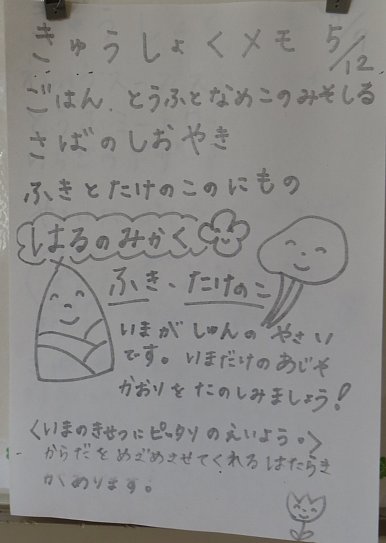 きゅうしょくメモ 5/12
ごはん、とうふとなめこのみそしる
さばのしおやき
ふきとたけのこのにもの
はるのみかく
ふき、たけのこ
いまがしゅんのやさい
です。いまだけのあじや
かおりをたのしみましょう!
〈いまのきせつにピッタリのえいよう。〉
からだをめざめさせてくれるはたらき
があります。